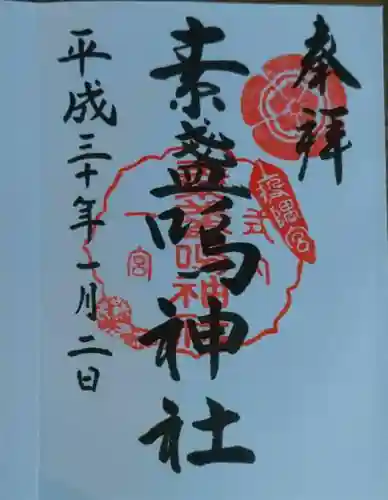 奉拝
素盞嗚神社
平成三十年一月二日
疫隅宮
式内
素盞嗚神社
一宮